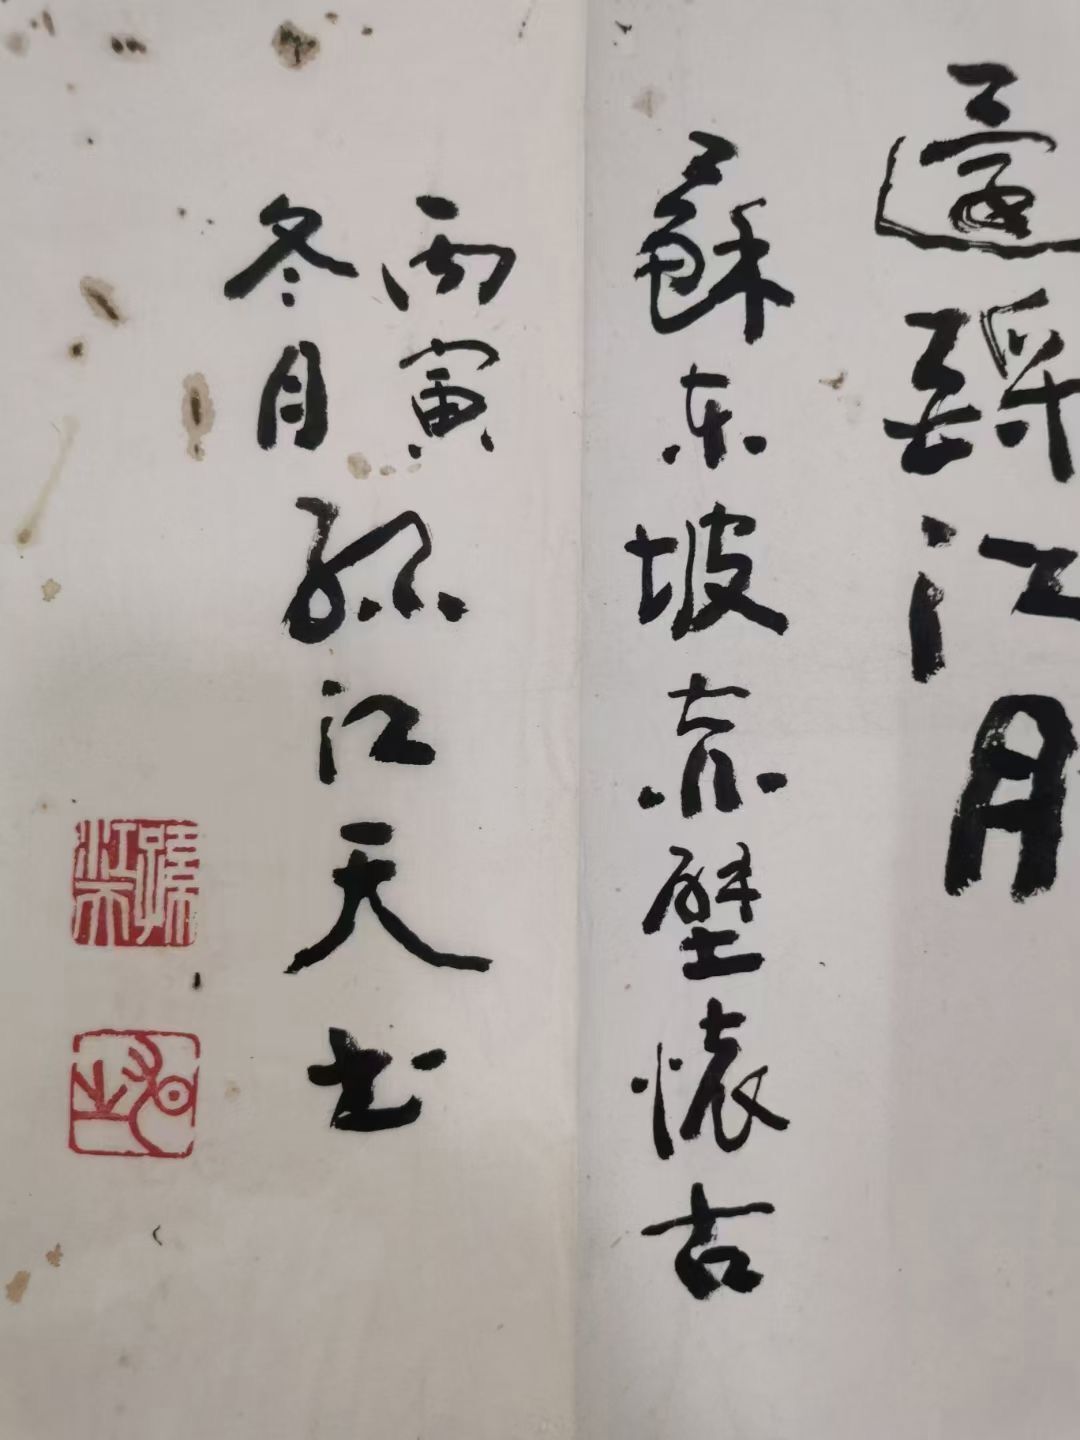 還酹江月
蘇东坡赤壁懷古
丙寅
冬月
孫江天书